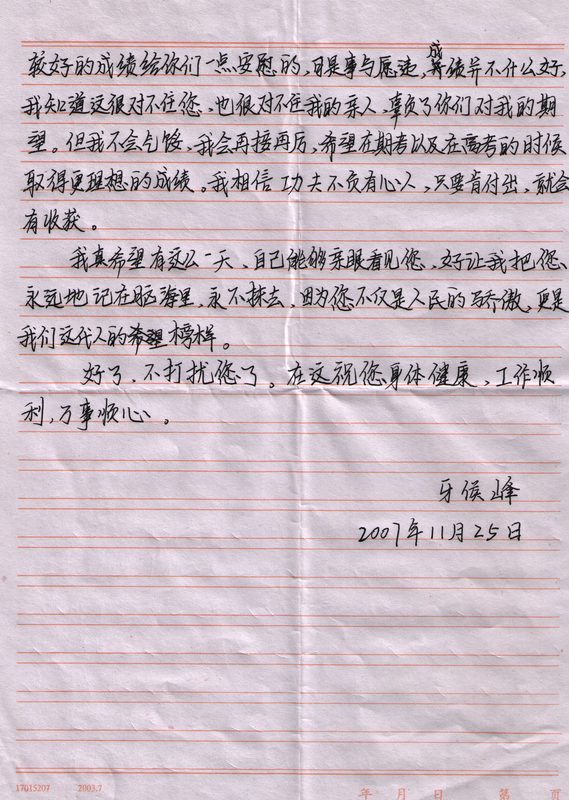 较好的成绩给你们一点安慰的,可是事与愿违,成绩并不什么好,
我知道这很对不住您、也很对不住我的亲人,辜负了你们对我的期
望。但我不会气馁,我会再接再厉,希望在期考以及在高考的时候
取得更理想的成绩。我相信功夫不负有心人,只要肯付出,就会
有收获。
我真希望有这么一天,自己能够亲眼看见您,好让我把您
永远地记在脑海里,永不抹去,因为您不仅是人民的骄傲,更是
我们这代人的希望榜样。
好了,不打扰您了。在这祝您身体健康,工作顺
利,万事顺心。
牙侯峰
2007年11月25日
17015207 2003.7 年 月 日 第 页